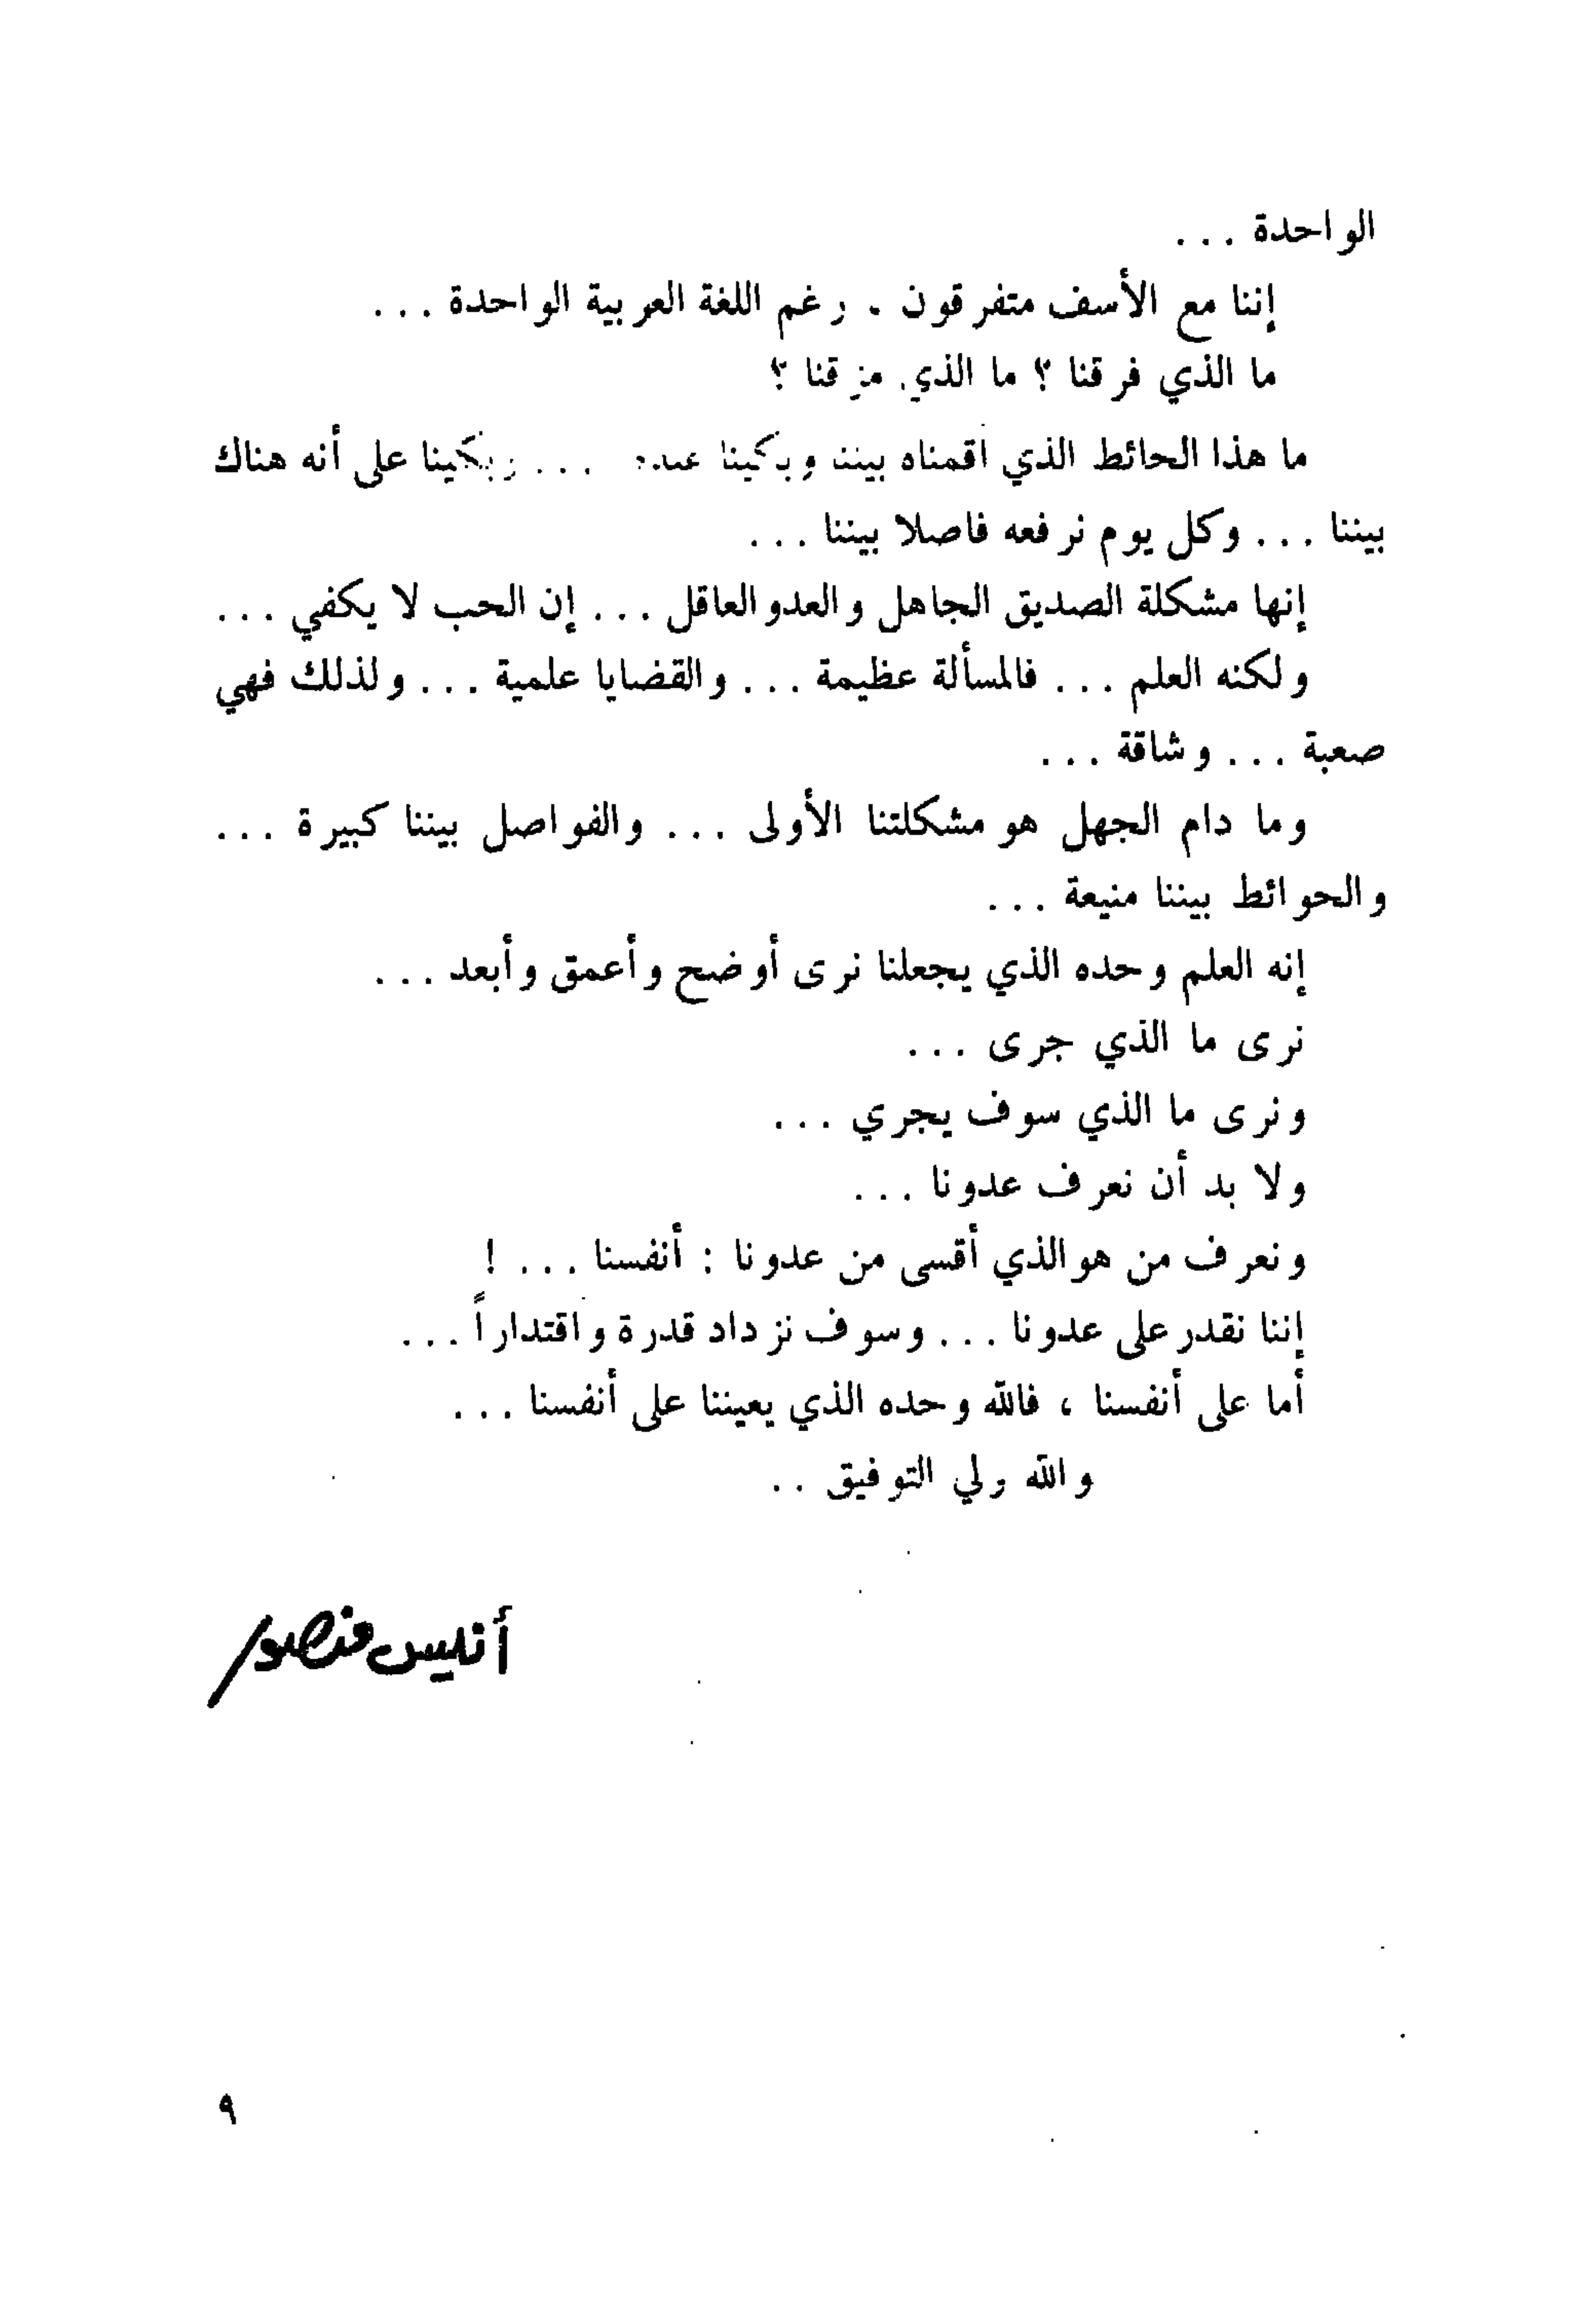 الواحدة ...
إننا مع الأسف متفرقون . رغم اللغة العربية الواحدة ...
ما الذي فرقنا ؟ ما الذي مزقنا ؟
ما هذا الحائط الذي أقمناه بيننا وبكينا ... وبكينا على أنه هناك
بيننا ... وكل يوم نرفعه فاصلا بيننا ...
إنها مشكلة الصديق الجاهل والعدو العاقل ... إن الحب لا يكفي ...
ولكنه العلم ... فالمسألة عظيمة ... والقضايا علمية ... ولذلك فهي
صعبة ... وشاقة ...
وما دام الجهل هو مشكلتنا الأولى ... والفواصل بيننا كبيرة ...
والحوائط بيننا منيعة ...
إنه العلم وحده الذي يجعلنا نرى أوضح وأعمق وأبعد ...
نرى ما الذي جرى ...
ونرى ما الذي سوف يجري ...
ولا بد أن نعرف عدونا ...
ونعرف من هو الذي أقسى من عدونا : أنفسنا ... !
إننا نقدر على عدونا ... وسوف نزداد قدرة واقتداراً ...
أما على أنفسنا ، فالله وحده الذي يعيننا على أنفسنا ...
والله ولي التوفيق ..
أنيس منصور
٩